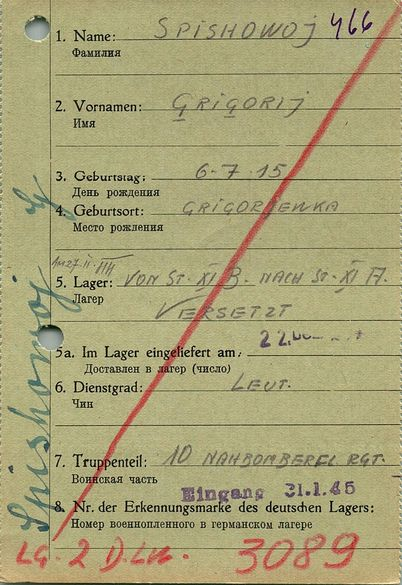 1. Name: SPISHOWOJ 466
Фамилия
2. Vornamen: GRIGORIJ
Имя
3. Geburtstag: 6-7-15
День рождения
4. Geburtsort: GRIGORJEWKA
Место рожления
5. Lager: VON ST- XI B. NACH ST- XI A.
Лагер
VERSETZT
5a. Im Lager eingeliefert am:
Доставлен в лагер (число)
6. Dienstgrad: LEUT.
Чин
7. Truppenteil: 10 NAHBOMBEREI RGT.
Воинская часть
Eingang 31.1.45
8. Nr. der Erkennungsmarke des deutschen Lagers:
Номер военнопленного в германском лагере
LG. 2 D.Lw. 3089
Spishowoj G